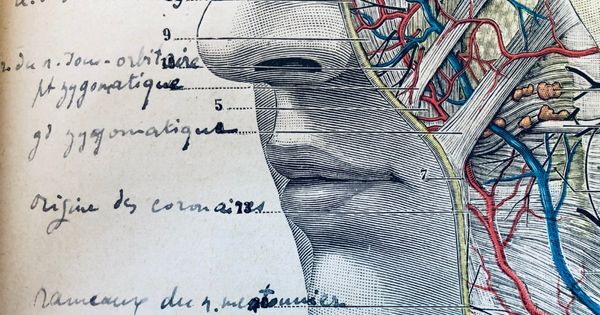 9
du n. sous-orbitaire
10
pt zygomatique
5
gd zygomatique
7
origine des coronaires
rameaux du n. mentonnier